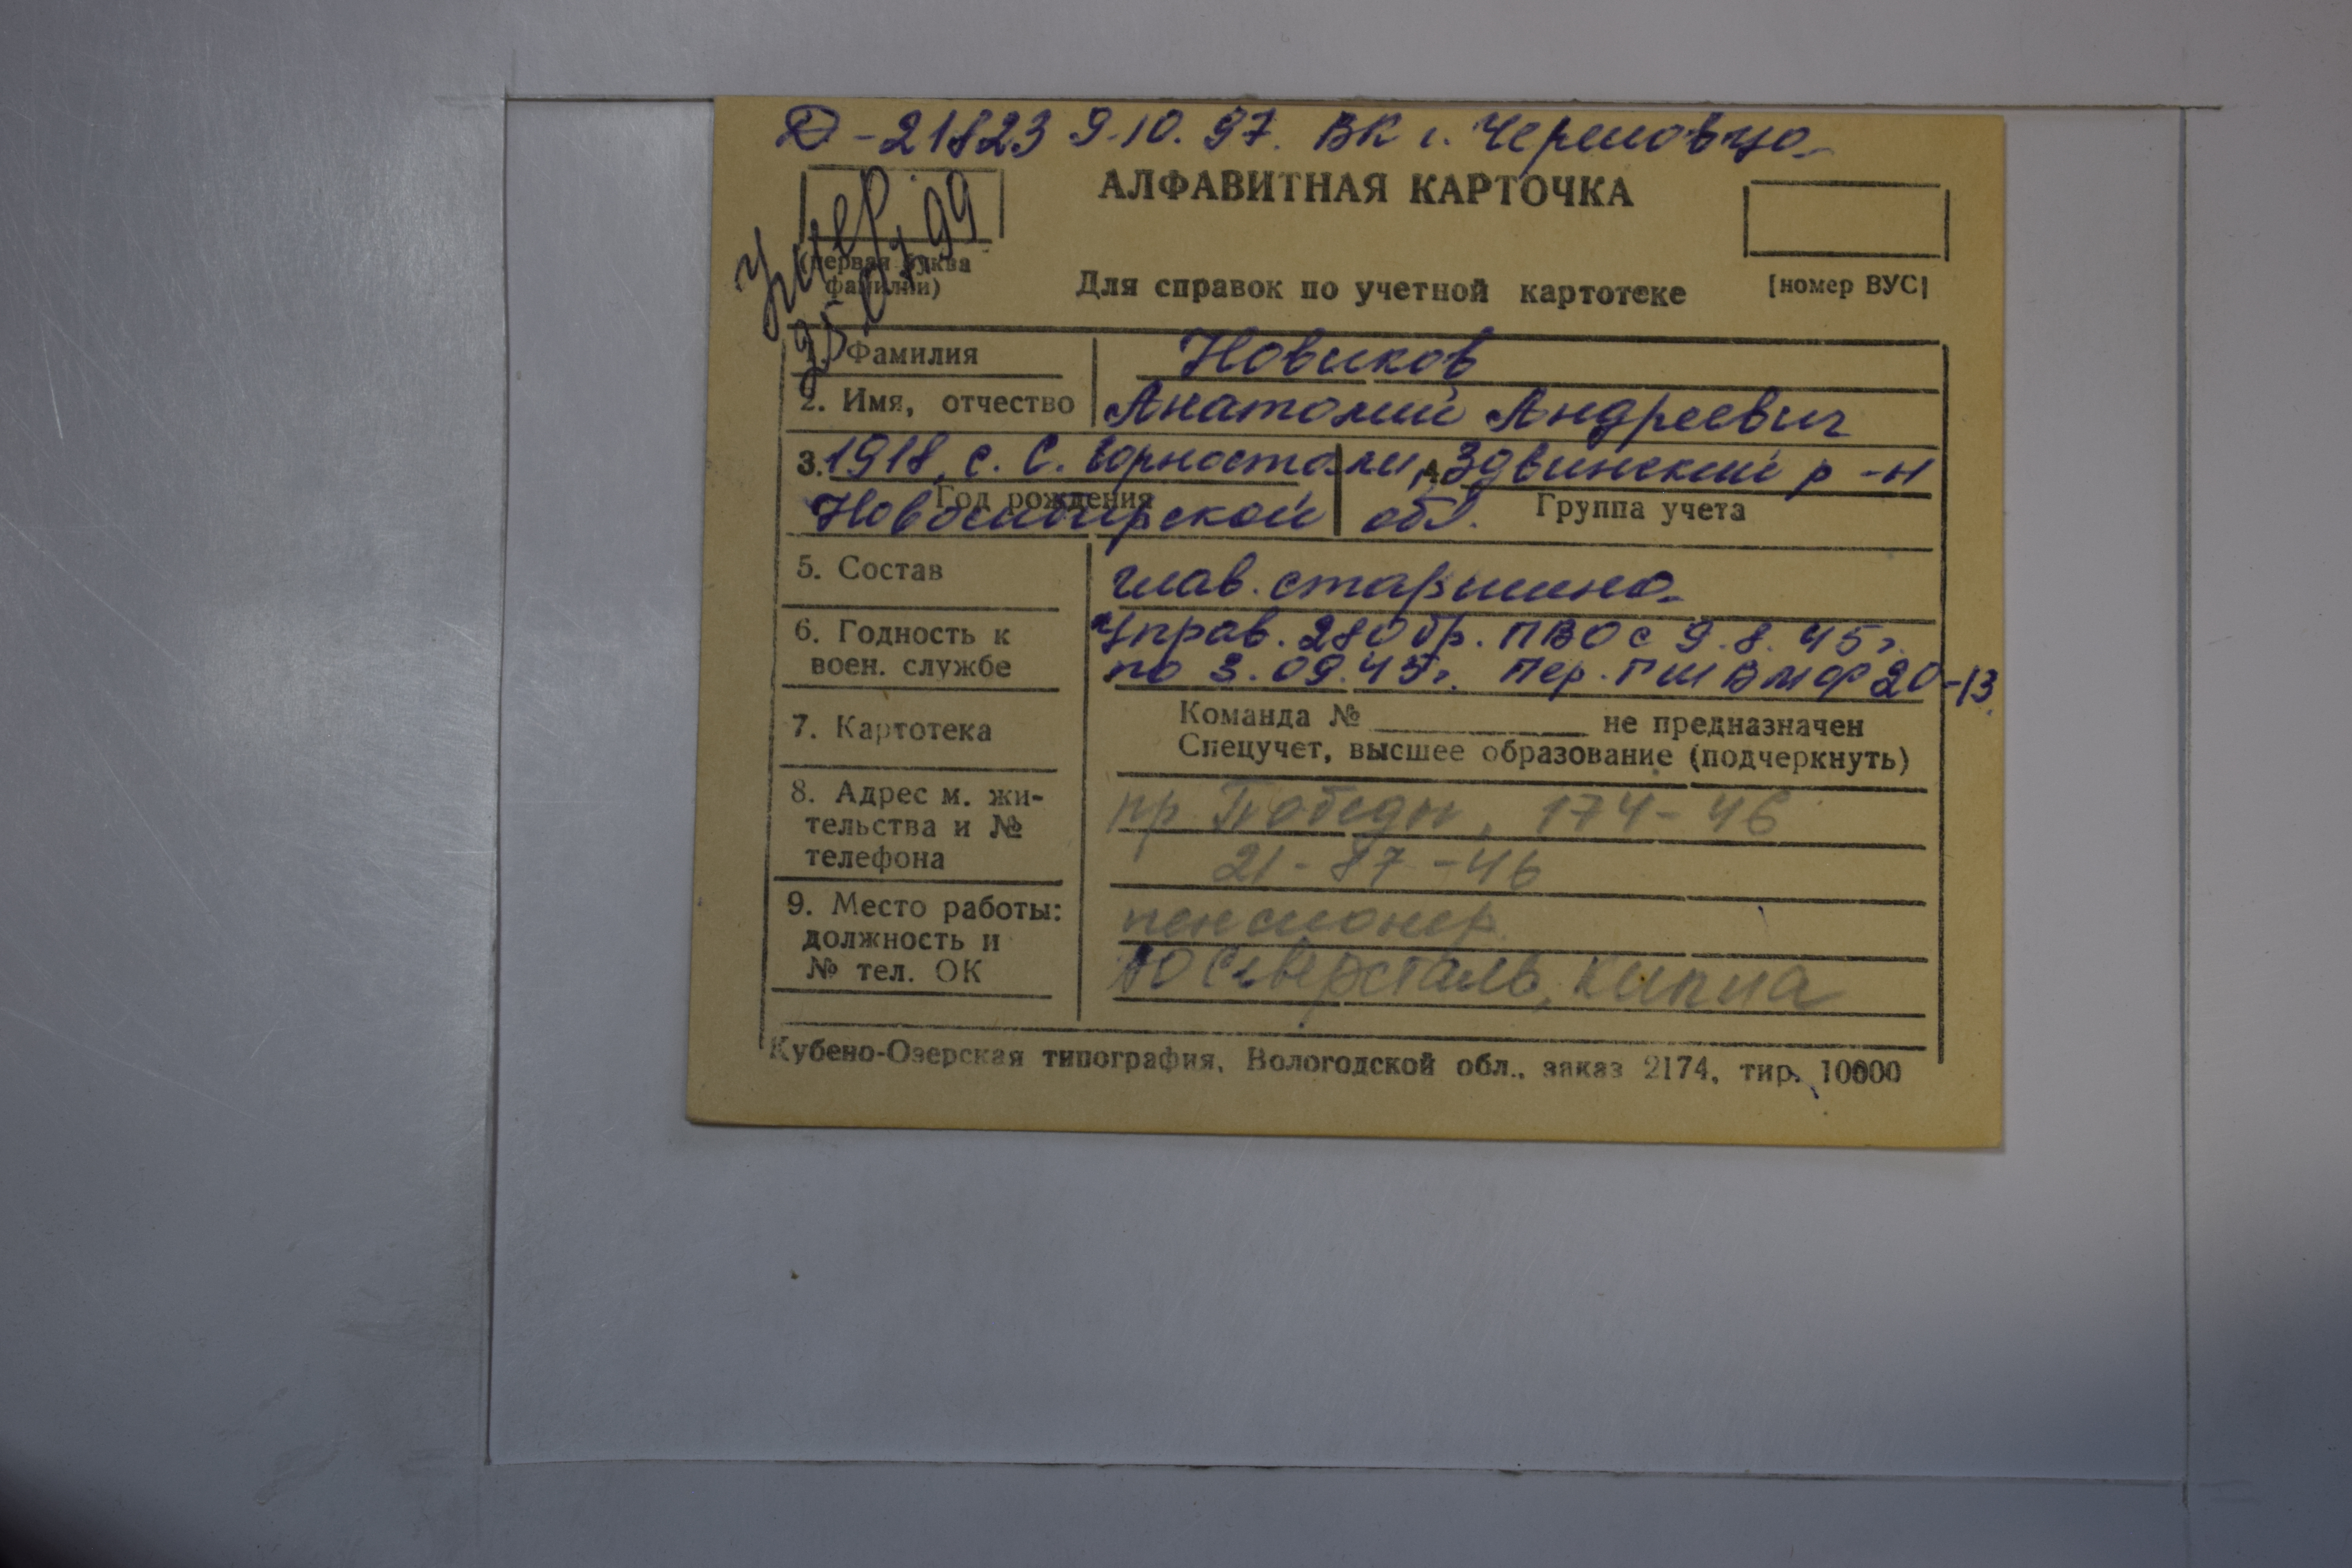 Д-21823 9.10.97. ВК г. Череповца
АЛФАВИТНАЯ КАРТОЧКА
умер
25.01.99
(первая буква
фамилии)
Для справок по учетной картотеке
[номер ВУС]
1. Фамилия Новиков
2. Имя, отчество Анатолий Андреевич
3. 1918, с. С. Горностали, 4. Здвинский р-н
Год рождения
Новосибирской обл. Группа учета
5. Состав глав. старшина
6. Годность к воен. службе
Управ. 280бр. ПВО с 9.8.45г.
по 3.09.45г. Пер. ГШ ВМФ 20-13
7. Картотека
Команда № не предназначен
Спецучет, высшее образование (подчеркнуть)
8. Адрес м. жи-
тельства и №
телефона
пр. Победы, 174-46
21-87-46
9. Место работы:
должность и
№ тел. ОК
пенсионер
АО Северсталь, кипиа
Кубено-Озерская типография, Вологодской обл., заказ 2174, тир. 10000